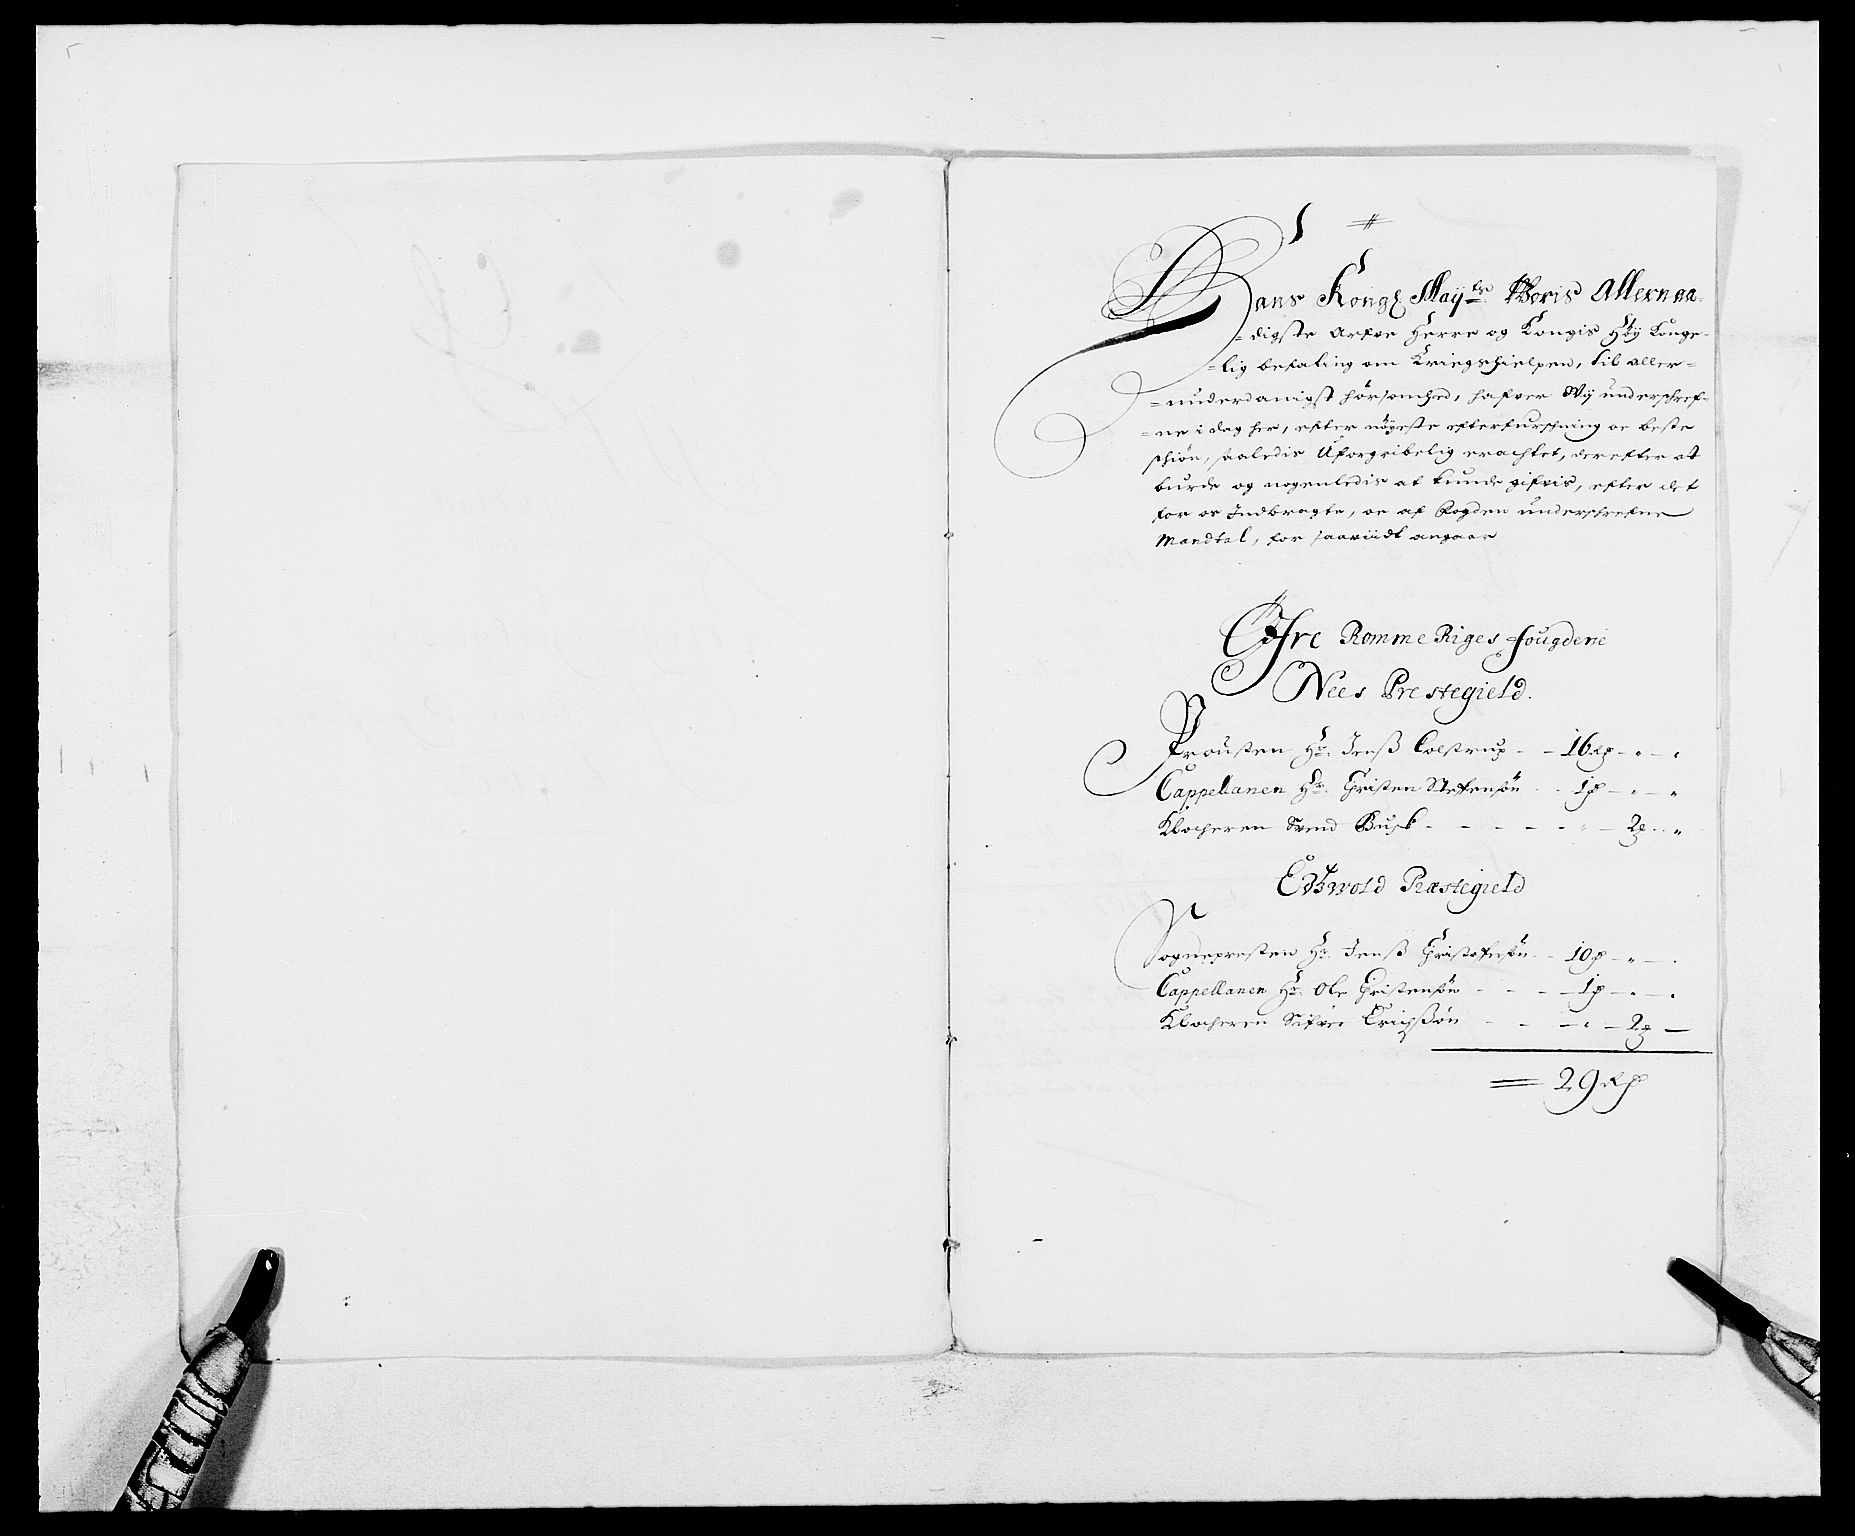 Hans Kongl Mayts Woris Allernaa-
=digste Arfve Herre og Kongis Høy Konge-
=lig befaling om Kriegshielpen, til aller=
=underdanigst hørsomhed, hafver Wy underschref=
=ne i dag her, efter nøyeste efterfurschning oc beste
schiøn, saaledis Uforgribelig erachtet, derefter at
burde og nogenledis at kunde gifvis, efter det
for os Indbragte, oc af Fogden underschrefne
Mandtal, for saaviidt angaar
Øfre Romme Riges Fougderie
Nees Prestegield.
Prousten Hr. Jenß Colstrup - - 16 Rd - " - "
Cappellanen Hr. Christen Stefensøn - - 1 d - " - "
Klocheren Svend Busk - - - - - " - 2 - "
Edtzwold Præstegield
Sognepresten Hr. Jenß Christofersøn - - 10 d - " -
Cappellanen Hr. Ole Christensøn - - - - 1 d - " - "
Klocheren Sifver Erichßøn - - - " - 2 -
= 29 Rd